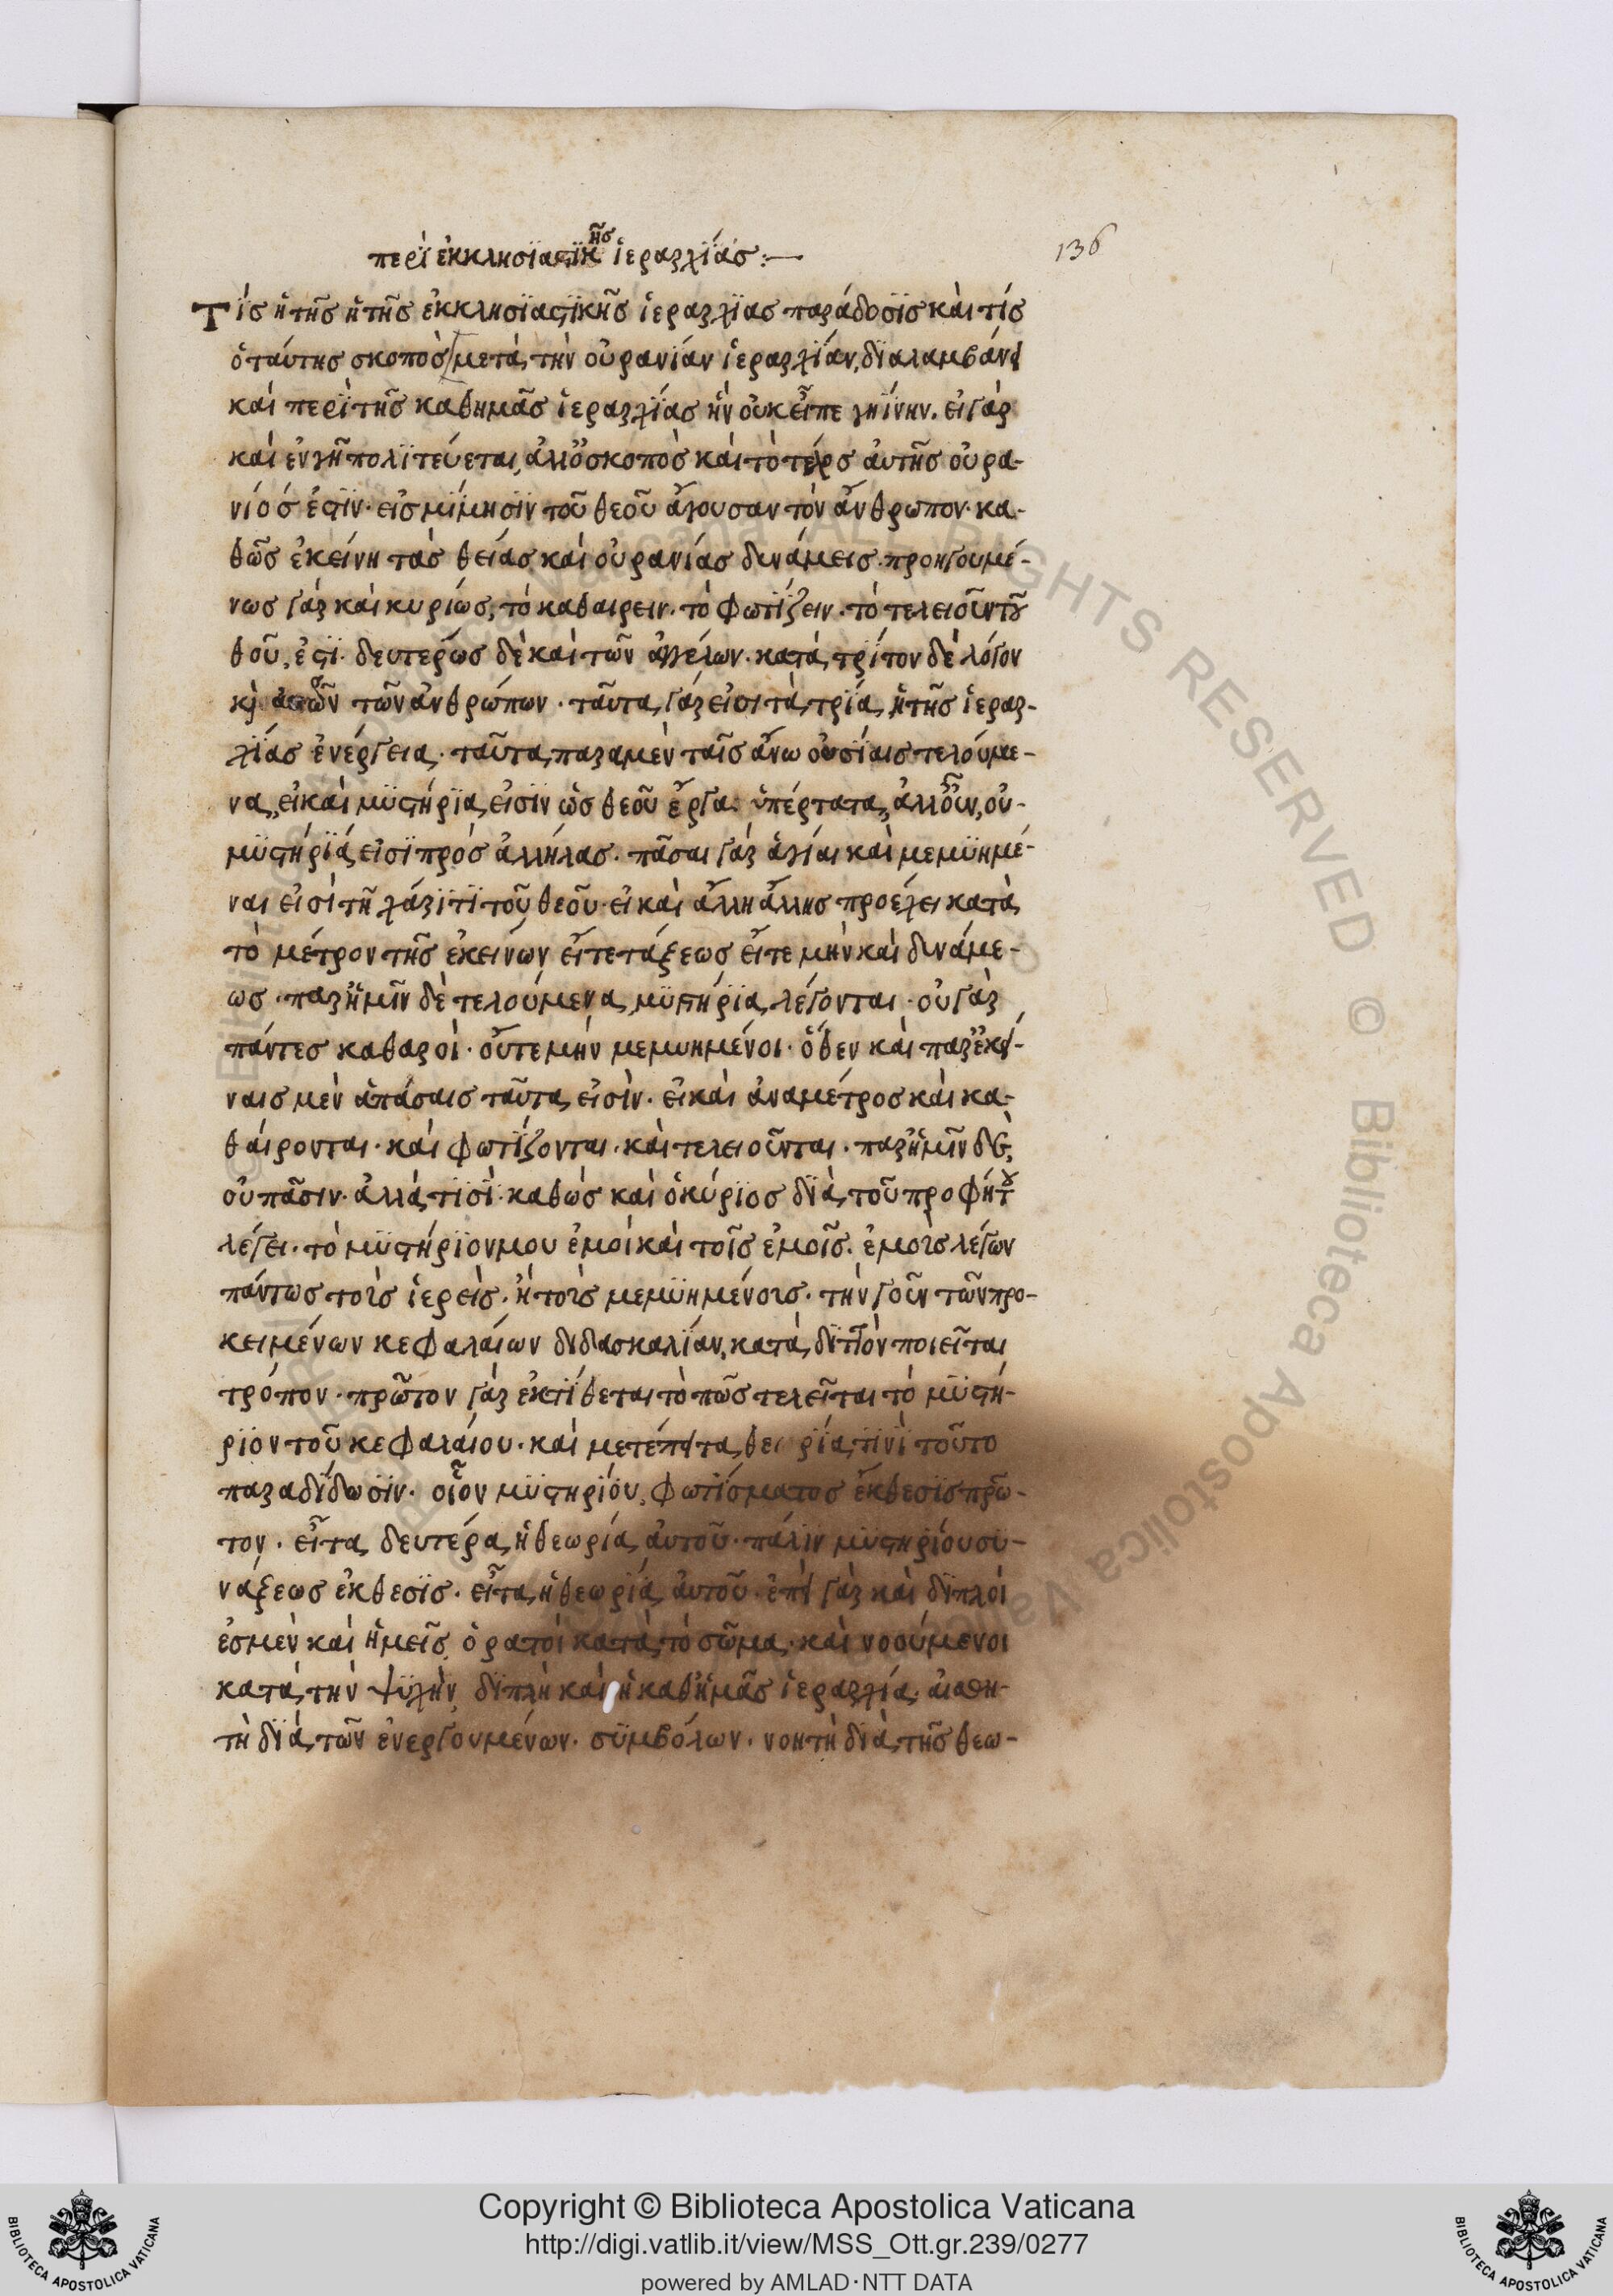 136
περὶ ἐκκλησϊαστϊκῆς ἱεραρχΐας :—
Τίς ἡ τῆς ἡ τῆς ἐκκλησϊαστϊκῆς ἱεραρχϊας παράδοσϊς καὶ τίς
ὁ ταύτης σκοπὸς μετὰ τὴν οὐρανίαν ἱεραρχΐαν, διαλαμβάνει
καὶ περὶ τῆς καθημᾶς ἱεραρχίας ἣν οὐκ εἶπε γηΐνην. εἰ γὰρ
καὶ ἐν γῆ πολϊτεύεται, ἀλλ' ὁ σκοπὸς καὶ τὸ τέρς αὐτῆς οὐρα-
νίός ἐστϊν· εἰς μΐμησϊν τοῦ θεοῦ ἄγουσαν τὸν ἄνθρωπον· κα-
θῶς ἐκείνη τὰς θείας καὶ οὐρανίας δυνάμεις. προηγουμέ-
νως γὰρ καὶ κυρίως, τὸ καθαιρειν· τὸ φωτΐζειν· τὸ τελειοῦν τοῦ
θοῦ, ἐστϊ· δευτερώς δὲ καὶ τῶν ἀγγέλων· κατὰ τρίτον δὲ λόγον
κὶ τῶν ἀνθρώπων · ταῦτα γάρ εἰσι τὰ τρία, ἡ τῆς ἱεραρ-
χΐας ἐνέργεια· ταῦτα παρα μὲν ταῖς ἄνω οὐσΐαις τελούμε-
να, εἰ καὶ μϋστήρϊα εἰσϊν ὡς θεοῦ ἔργα ὑπέρτατα, ἀλλ' οὖν, οὐ-
μϋστήρϊά εἰσϊ πρὸς ἀλλήλας · πᾶσαι γὰρ ἁγίαι καὶ μεμϋημέ-
ναι εἰσὶ τῆ χάρϊτϊ τοῦ θεοῦ· εἰ καὶ ἄλλη ἄλλης προέχει κατὰ
τὸ μέτρον τῆς ἐκεινων εἴτε τάξεως εἴτε μὴν καὶ δυνάμε-
ως · παρ' ἡμῖν δὲ τελούμενα, μϋστήρϊα λέγονται · οὐ γὰρ
πάντες καθαροὶ · οὔτε μὴν μεμυημένοι · ὅθεν καὶ παρ' ἐκεί-
ναις μὲν ἁπάσαις ταῦτα εἰσὶν · εἰ καὶ ἀναμέτρος καὶ κα-
θαίρονται · καὶ φωτΐζονται · καὶ τελειοῦνται · παρ' ἡμῖν δὲ,
οὐ πᾶσιν· ἀλλὰ τϊσΐ· καθώς καὶ ὁ κύρϊος διὰ τοῦ προφήτου
λέγει · τὸ μϋστήρϊον μου ἐμοὶ καὶ τοῖς ἐμοῖς. ἐμοῖς λέγων
πάντως τοῖς ἱερεῖς · ἢ τοῖς μεμϋημένοις · τὴν γοῦν τῶν προ-
κειμένων κεφαλαίων διδασκαλΐαν, κατὰ διττὸν ποιεῖται
τρόπον · πρῶτον γὰρ ἐκτΐθεται τὸ πῶς τελεῖται τὸ μϋστή-
ρϊον τοῦ κεφαλαίου · καὶ μετέπειτα, θεωρΐα τϊνὶ τοῦτο
παραδΐδωσϊν· οἷον μϋστηρΐου, φωτΐσματος ἔκθεσϊς πρῶ-
τον · εἶτα δευτέρα, ἡ θεωρία αὐτοῦ · πάλϊν μϋστηρΐου συ-
νάξεως ἐκθεσϊς · εἶτα ἡ θεωρΐα αὐτοῦ · ἐπεὶ γὰρ καὶ δϊπλοῖ
ἐσμὲν καὶ ἡμεῖς ὁρατοὶ κατὰ τὸ σῶμα · καὶ νοούμενοι
κατὰ τὴν ψϋχὴν, δϊπλὴ καὶ ἡ καθ' ἡμᾶς ἱεραρχΐα · αἰσθη-
τὴ διὰ τῶν ἐνεργουμένων · σϋμβόλων · νοητὴ διὰ τῆς θεω-
Copyright © Biblioteca Apostolica Vaticana
http://digi.vatlib.it/view/MSS_Ott.gr.239/0277
powered by AMLAD·NTT DATA